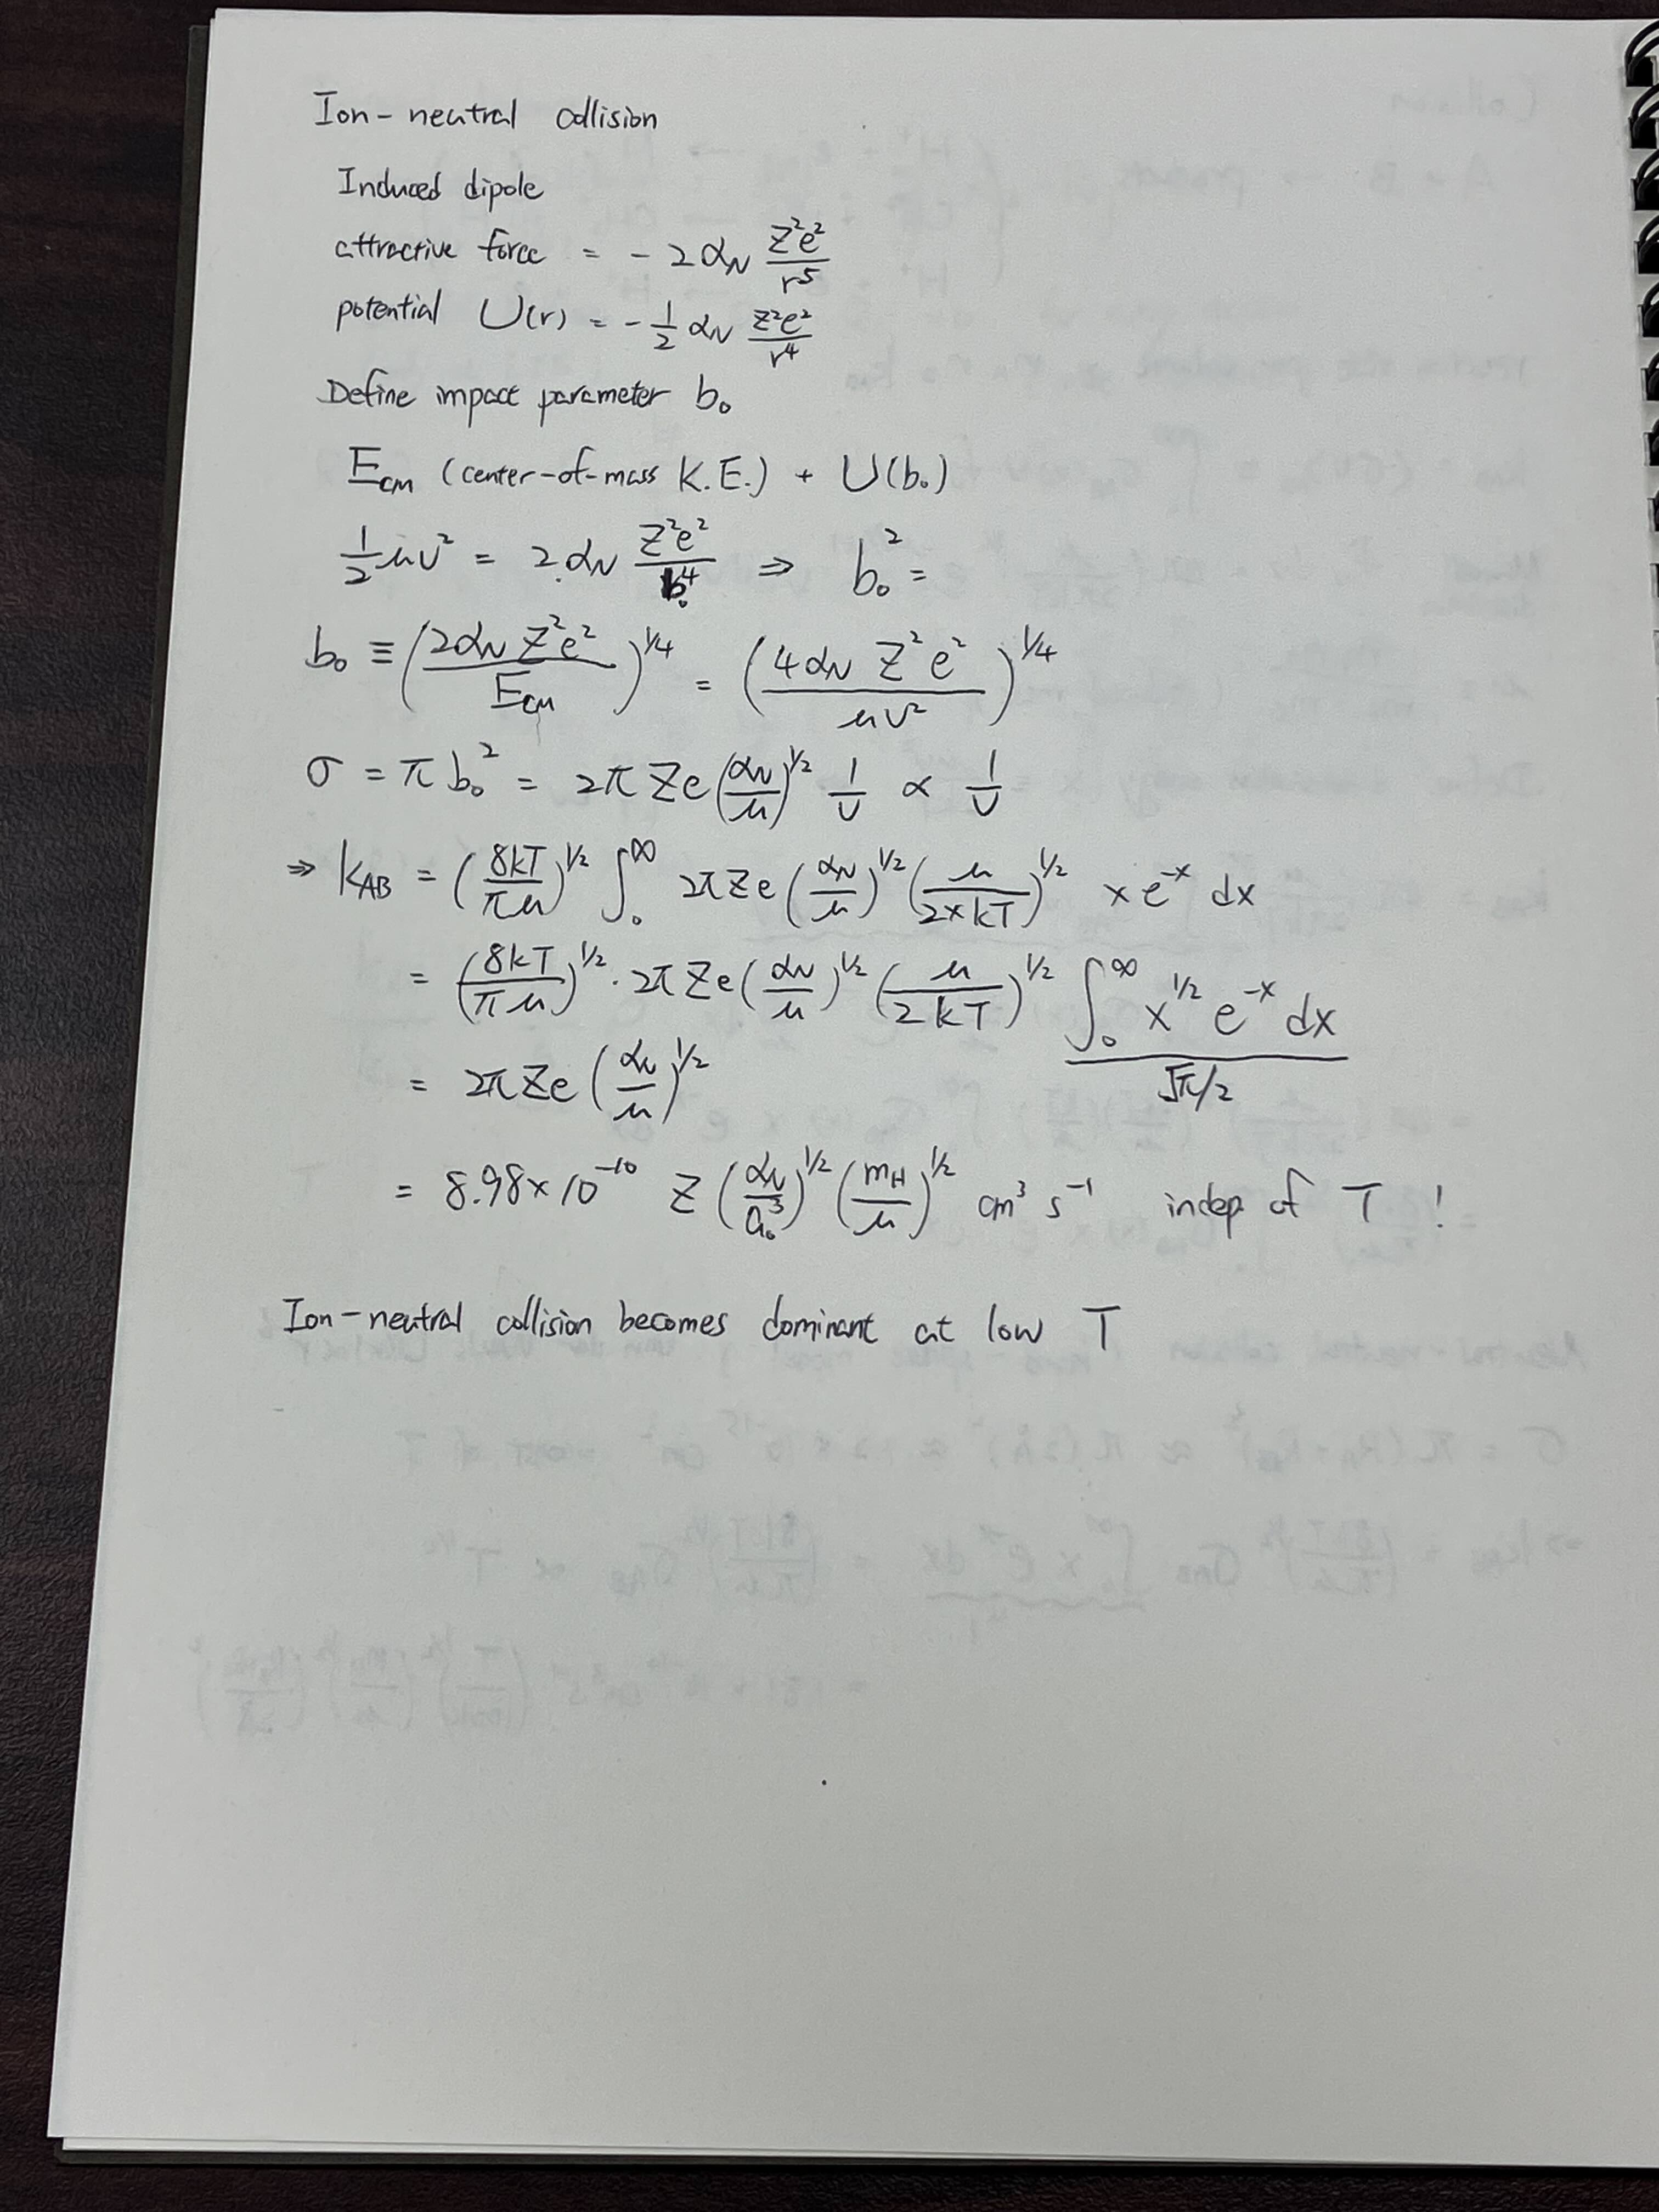 Ion-neutral collision
Induced dipole
attractive force = - 2 α_N Z²e²/r⁵
potential U(r) = - 1/2 α_N Z²e²/r⁴
Define impact parameter b₀
E_CM (center-of-mass K.E.) + U(b₀)
1/2 μv² = 2 α_N Z²e²/b₀⁴ ⇒ b₀² =
b₀ ≡ (2α_N Z²e²/E_CM)^1/4 = (4α_N Z²e²/μv²)^1/4
σ = π b₀² = 2π Ze (α_N/μ)^1/2 1/v ∝ 1/v
⇒ k_AB = (8kT/πμ)^1/2 ∫₀^∞ 2π Ze (α_N/μ)^1/2 (μ/2xkT)^1/2 x e^-x dx
= (8kT/πμ)^1/2 · 2π Ze (α_N/μ)^1/2 (μ/2kT)^1/2 ∫₀^∞ x^1/2 e^-x dx
√π/2
= 2π Ze (α_N/μ)^1/2
= 8.98×10^-10 Z (α_N/a₀³)^1/2 (m_H/μ)^1/2 cm³ s^-1 indep of T !
Ion-neutral collision becomes dominant at low T